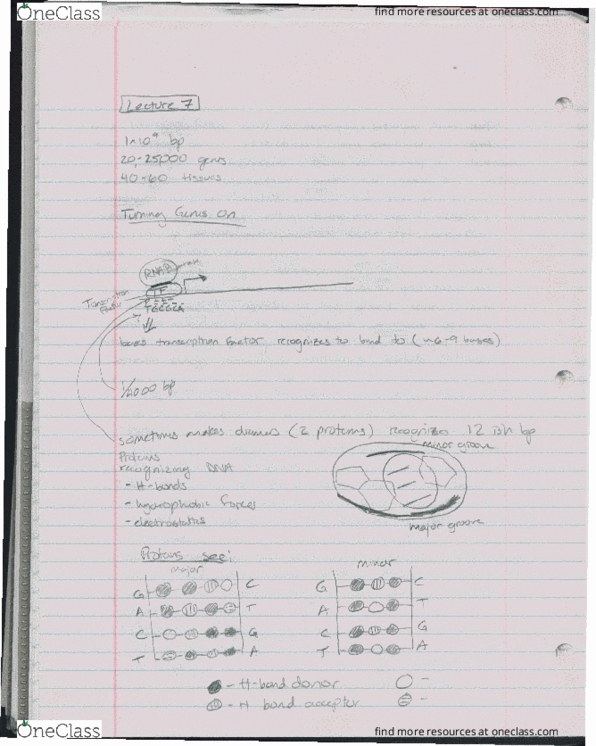 OneClass
find more resources at oneclass.com
Lecture 7
1×10⁹ bp
20-25,000 genes
40-60 tissues
Turning Genes On
RNAP
TF
Transcription
Factor
bases transcription factor recognizes to bind to (~6-9 bases)
bp
sometimes makes dimers (2 proteins) recognizes 12 ish bp
minor groove
Proteins
recognizing DNA
- H-bonds
- hydrophobic forces
- electrostatics
major groove
Proteins see:
major
minor
G C
G C
A T
A T
C G
C G
T A
T A
- H-bond donor
-
- H bond acceptor
-
OneClass
find more resources at oneclass.com